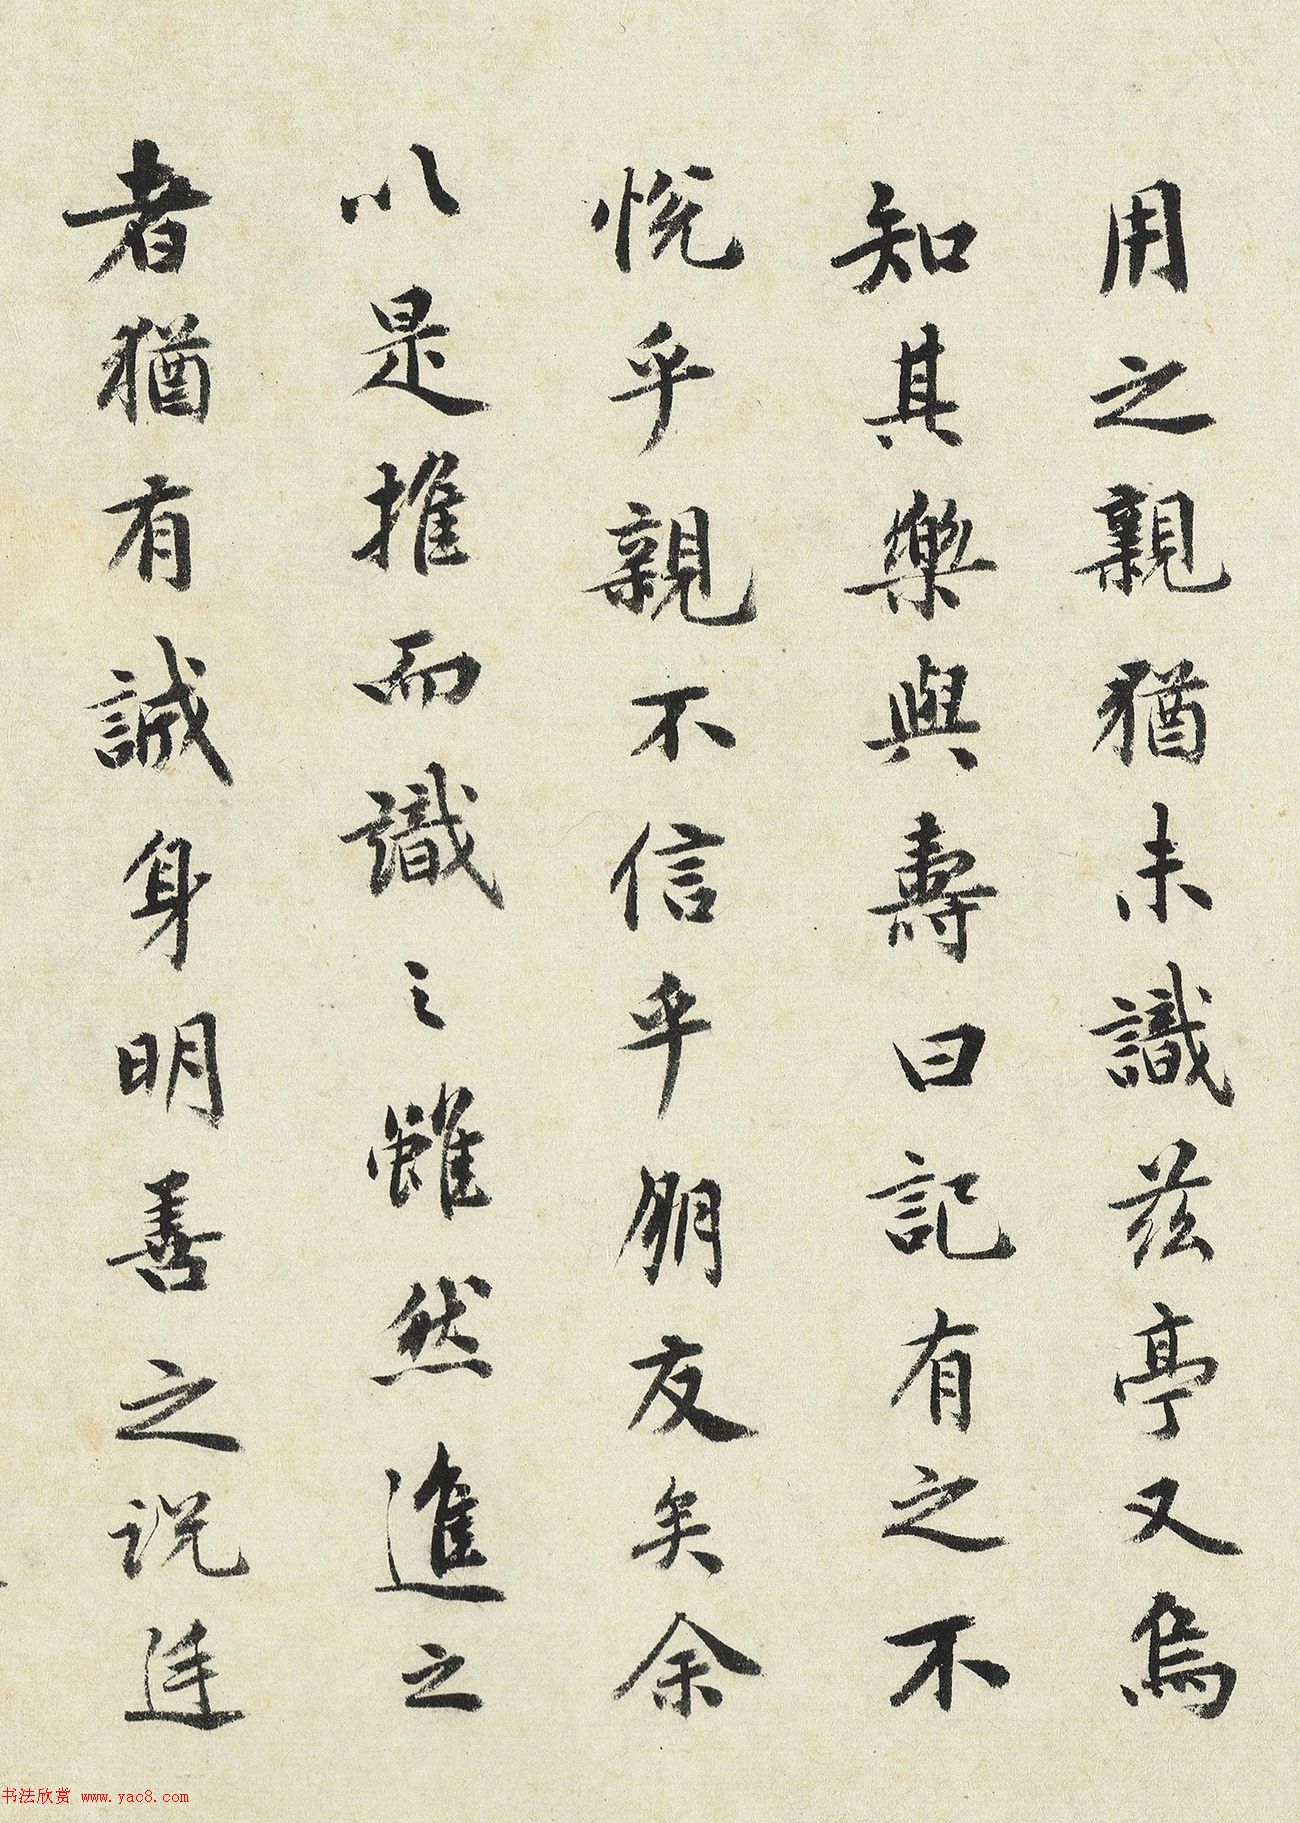 用之親猶未識茲亭又烏
知其樂與壽曰記有之不
悅乎親不信乎朋友矣余
以是推而識之雖然進之
者猶有誠身明善之說廷
书法欣赏 www.yac8.com